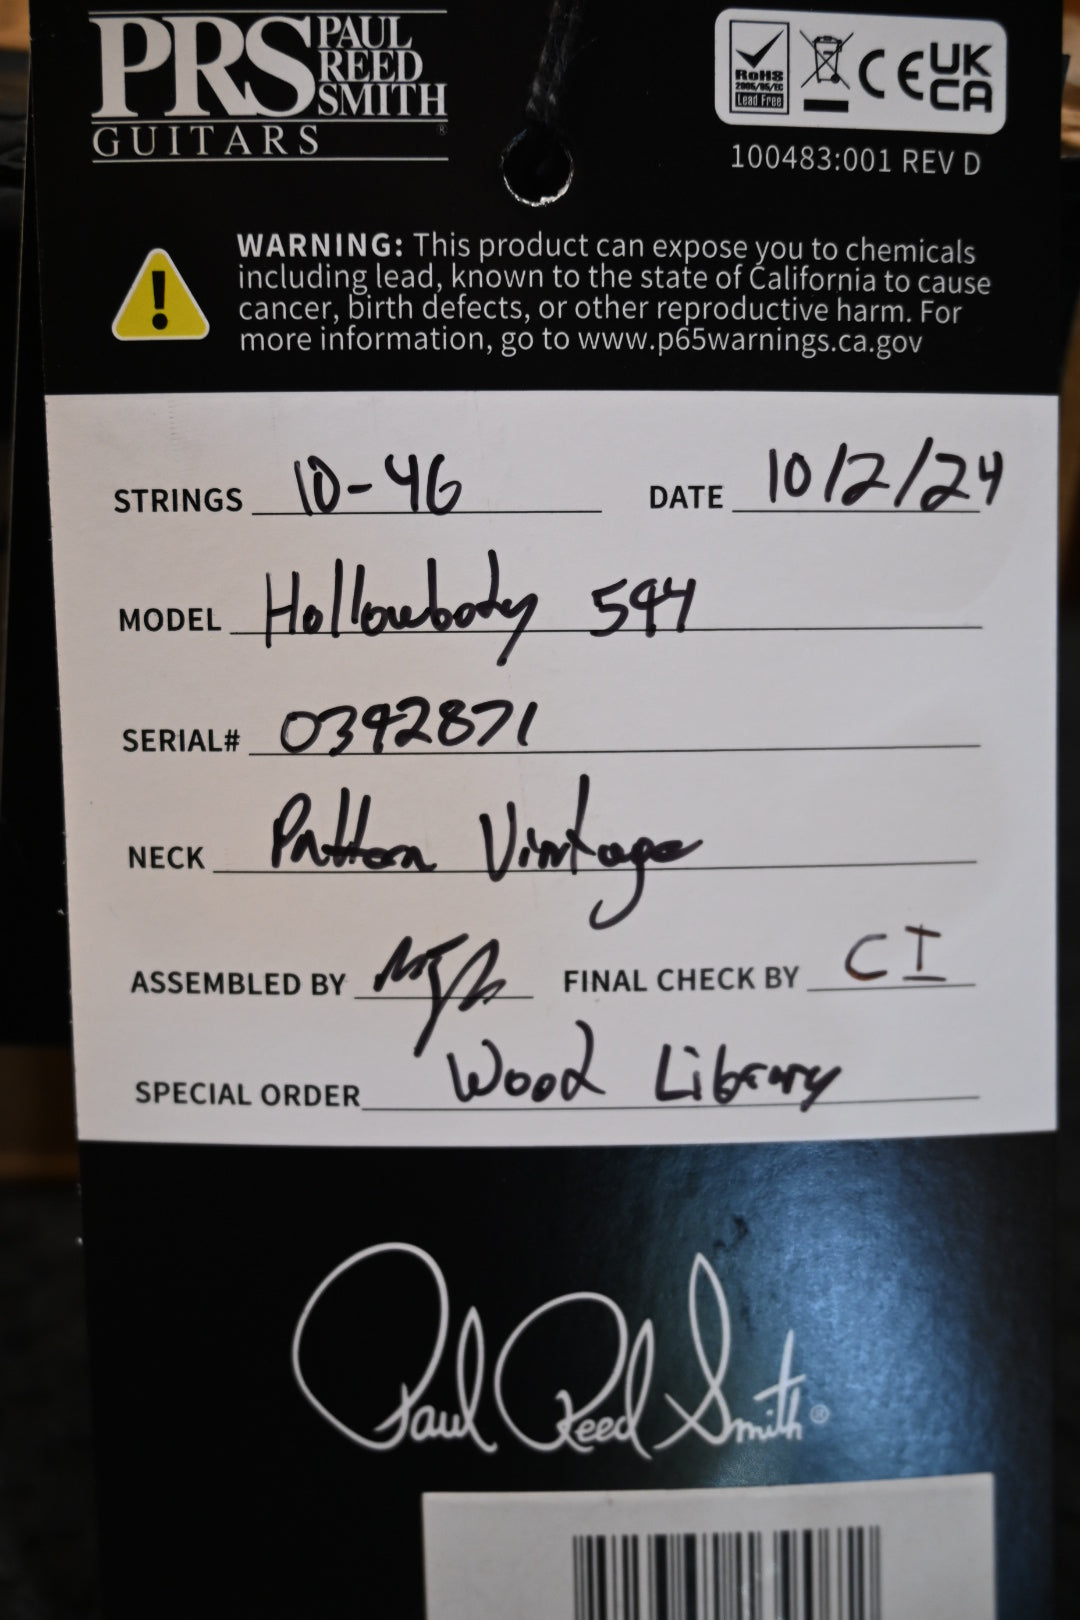 PRS PAUL REED SMITH
GUITARS®
RoHS
2005/95/EC
Lead Free
CE UK CA
100483:001 REV D
WARNING: This product can expose you to chemicals
including lead, known to the state of California to cause
cancer, birth defects, or other reproductive harm. For
more information, go to www.p65warnings.ca.gov
STRINGS 10-46 DATE 10/2/24
MODEL Hollowbody 594
SERIAL# 0392871
NECK Pattern Vintage
ASSEMBLED BY FINAL CHECK BY CI
SPECIAL ORDER Wood Library
Paul Reed Smith®